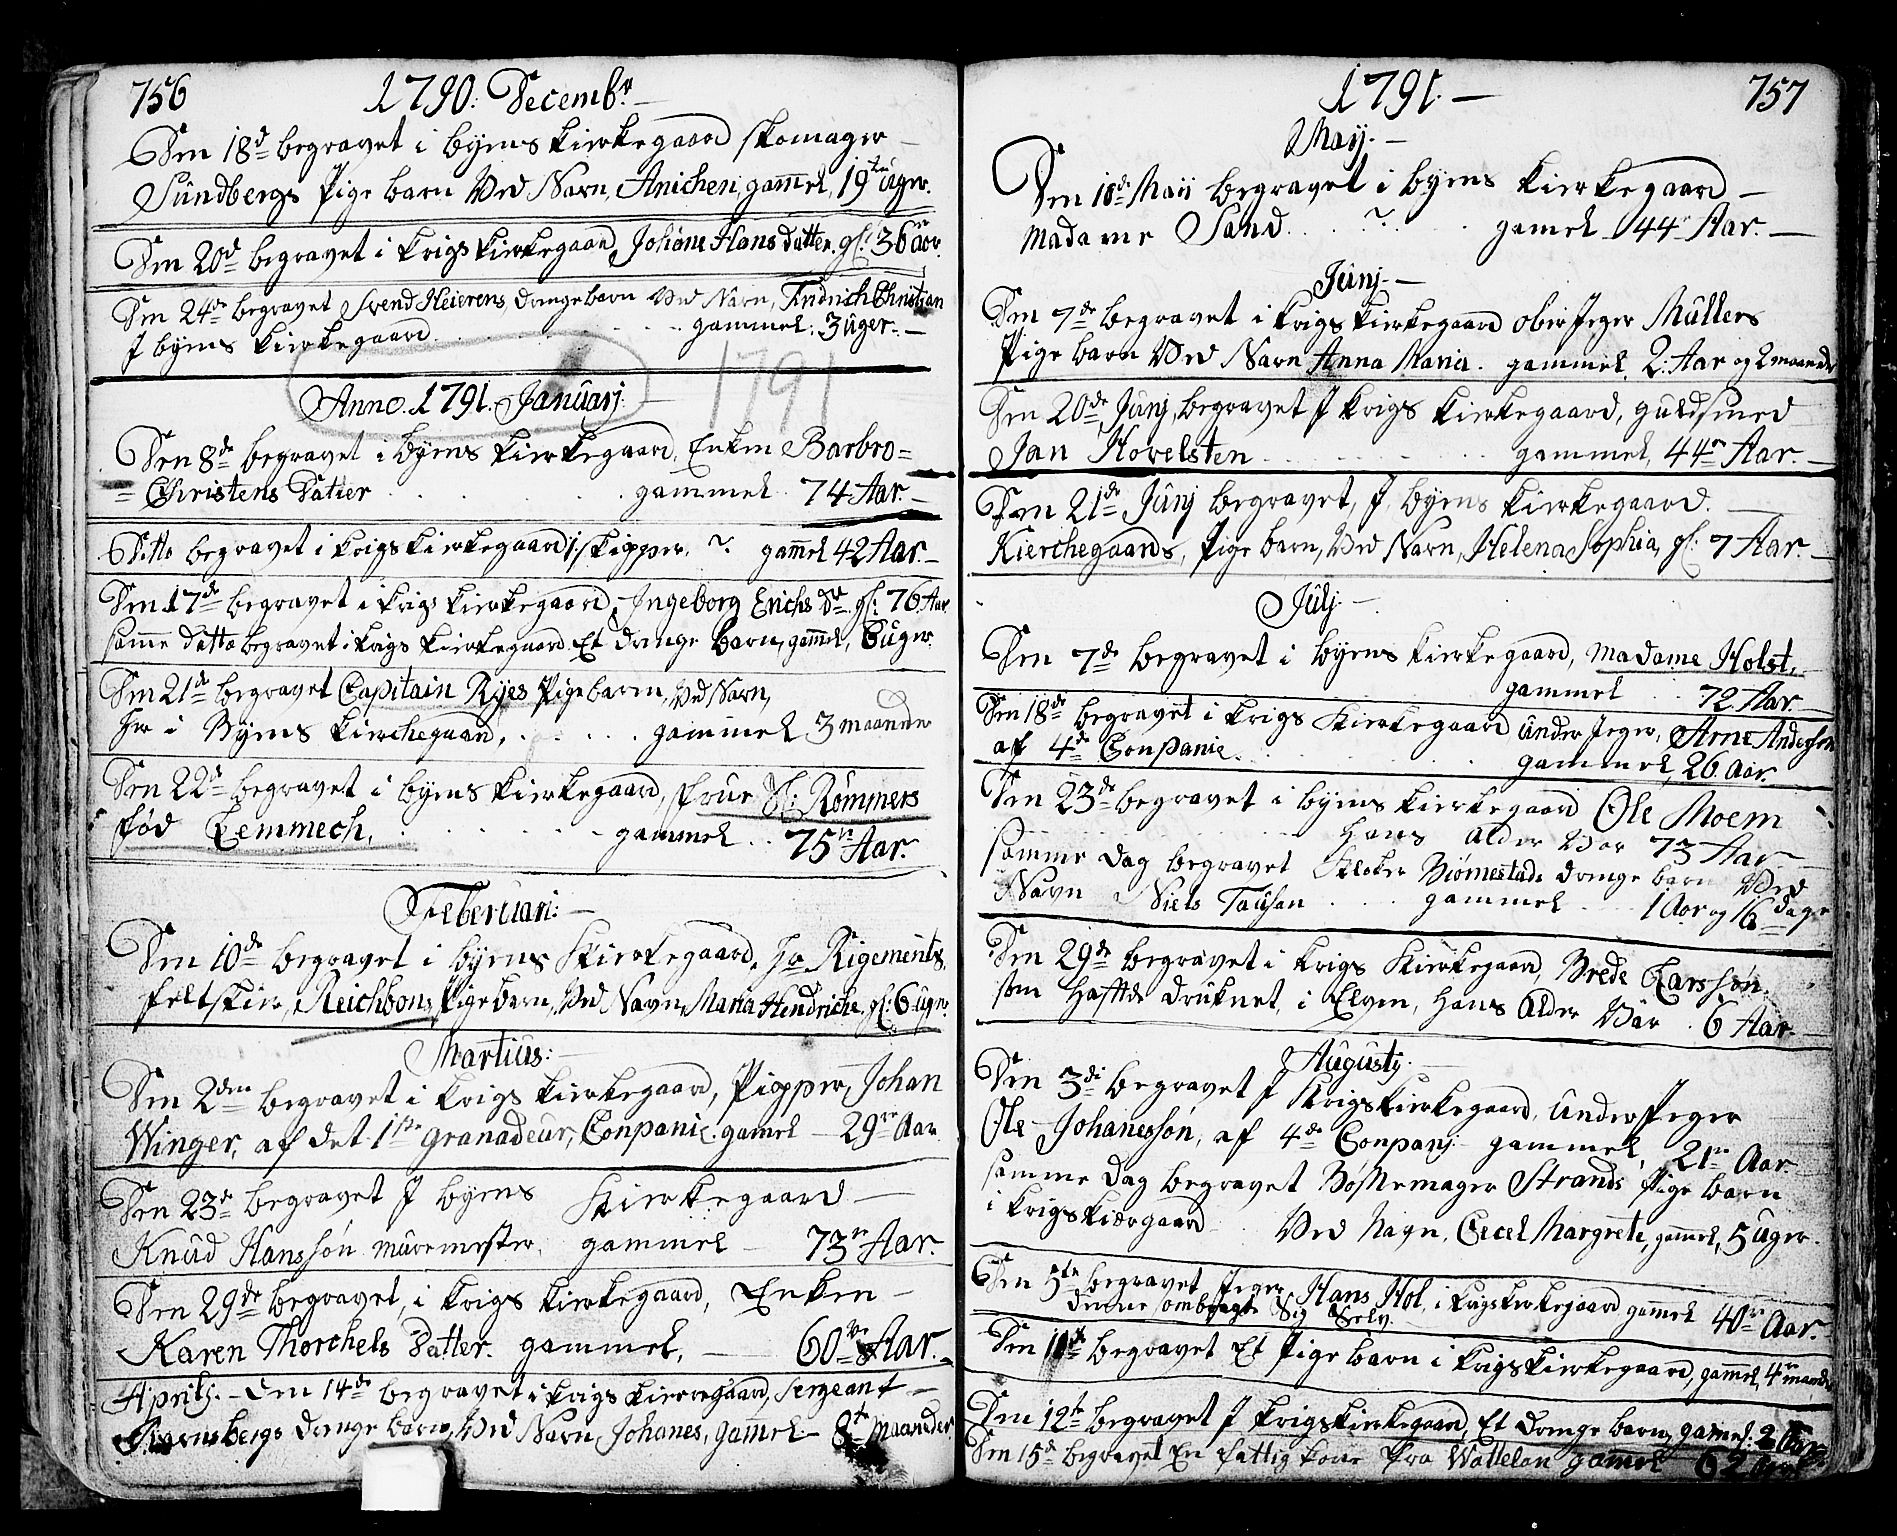 756 1790: Decembr
Den 18d begravet i byens kierkegaard skomager
Sündbergs Pige barn Ved Navn, Anichen, gam̄el, 19ten uger.
Den 20d begravet i krigs kierkegaard, Johane Hans datter. gl: 36 aar
Den 24de begravet Svend Heierens, drengebarn Ved Navn, Christian
I byens kierkegaard gammel. 3 üger.
Anno. 1791. Januarj:
1791
Den 8de begravet i byens kierkegaard, Enken Barbro=
= Christens Datter gammel. 74 Aar.
Ditto begravet i krigs kierkegaard 1 skipper. ? gam̄el 42 Aar.
Den 17de begravet i krigs kierkegaard, Ingeborg Erichs dr. gl: 76 Aar
samme datto begravet i krigs kierkegaard Et drenge barn, gam̄el, 6 üger.
Den 21de begravet Capitain Ryes Pigebarn, Ved Navn,
her i Byens kierchegaard, gammel 3 maaneder
Den 22de begravet i byens kierkegaard, frue Sl: Römmers
fød Lemmech, gammel 75 Aar.
Feberuari:
Den 10de begravet i byens kierkegaard, Hr Rigements
feltskier, Reichbons, Pigebarn, Ved Navn, Maria Hendriche. gl: 6 uger
Martius:
Den 2den begravet i krigs kierkegaard, Pipper, Johan
Winger, af det 1ste granadeur, Conpanie. gamel 29 Aar
Den 23de begravet I byens kierkegaard
Knud Hanssön müremester, gammel 73 Aar.
Den 29de begravet, i krigs kierkegaard, Enken
Karen Thorchels Datter. gammel, 60 Aar.
Aprilj. Den 14de begravet i krigs kierkegaard, sergeant
drenge barn, Ved Navn, Johanes, gam̄el 8 maaneder
1791. 757
Maij.
Den 18de Maii begravet i byens kierkegaard
Madame Sand ? gamel 44 Aar.
Junj.
Den 7de begravet i krigs kierkegaard oberjeger Müllers
Pige barn Ved Navn Anna Maria. gammel 2 Aar og 2 maaneder
Den 20de Junj, begravet I krigs kierkegaard, guldsmed
Jan Hovelsten gammel, 44 Aar.
Den 21de Junj begravet, I byens kierkegaard.
Kierchegaards, Pige barn, Ved Navn, Helena Sophia, gl: 7 Aar.
Julj
Den 7de begravet i byens kierkegaard, madame Holst,
gammel 72 Aar.
Den 18de begravet i krigs kierkegaard under Jeger, Arne Andersen
af 4de Conpanie gammel, 26 Aar.
Den 23de begravet i byens kierkegaard Ole Moem
Hans Alder Var 73 Aar
samme dag begravet Kloker Biömestads drenge barn Ved
Navn Niels Tausan gammel 1 Aar og 16 dage
Den 29de begravet i krigs kierkegaard, Brede Larssön.
som hafde drüknet, i Elven, hans Alder Var 6 Aar
Augustj.
Den 3de begravet I Krigs kierkegaard, Under Jeger
Ole Johanessön, af 4de Conpanj gammel, 21 Aar.
samme dag begravet Bössemager Strands Pige barn
i krigs kiergaard Ved Nagn. Cecel Margrete, gam̄el, 5 üger.
Den 5te begravet Jeger Hans Hol, i krigskierkegaard gam̄el 40 Aar.
denne ombragte Sig Selv.
Den 11te begravet Et Pige barn i krigs kierkegaard, gam̄el, 4 maaneder
Den 12te begravet I krigskierkegaard, Et drenge barn, gamel: 2 Aar
Den 15de begravet En fattig kone fra Wattelan gamel 62